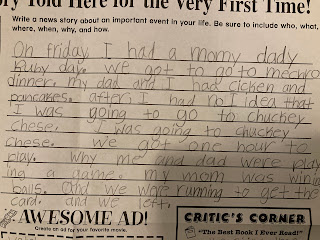 ry Told Here for the Very First Time!
Write a news story about an important event in your life. Be sure to include who, what,
where, when, why, and how.
On friday I had a momy dady
Ruby day. we got to go to mechro
dinner. my dad and I had cicken and
pancakes. after I had no I dea that
I was going to go to chuckey
chese. I was going to chuckey
chese. we got one hour to
play. why me and dad were play
ing a game. my mom was winin
balls. and we were running to get the
card. and we left.
AWESOME AD!
Create an ad for your favorite movie.
CRITIC'S CORNER
"The Best Book I Ever Read!"